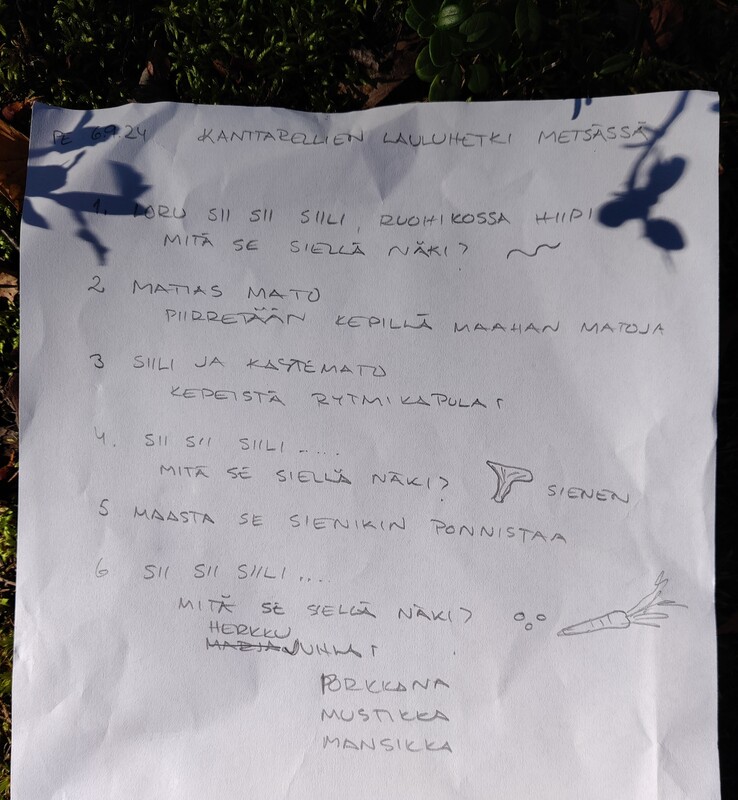 PE 6.9.24 KANTTARELLIEN LAULUHETKI METSÄSSÄ
1. LORU SII SII SIILI, RUOHIKOSSA HIIPI
MITÄ SE SIELLÄ NÄKI?
2 MATIAS MATO
PIIRRETÄÄN KEPILLÄ MAAHAN MATOJA
3 SIILI JA KASTEMATO
KEPEISTÄ RYTMIKAPULAT
4. SII SII SIILI .....
MITÄ SE SIELLÄ NÄKI? SIENEN
5 MAASTA SE SIENIKIN PONNISTAA
6 SII SII SIILI ....
MITÄ SE SIELLÄ NÄKI?
HERKKU
MARJAJUHLAT
PORKKANA
MUSTIKKA
MANSIKKA